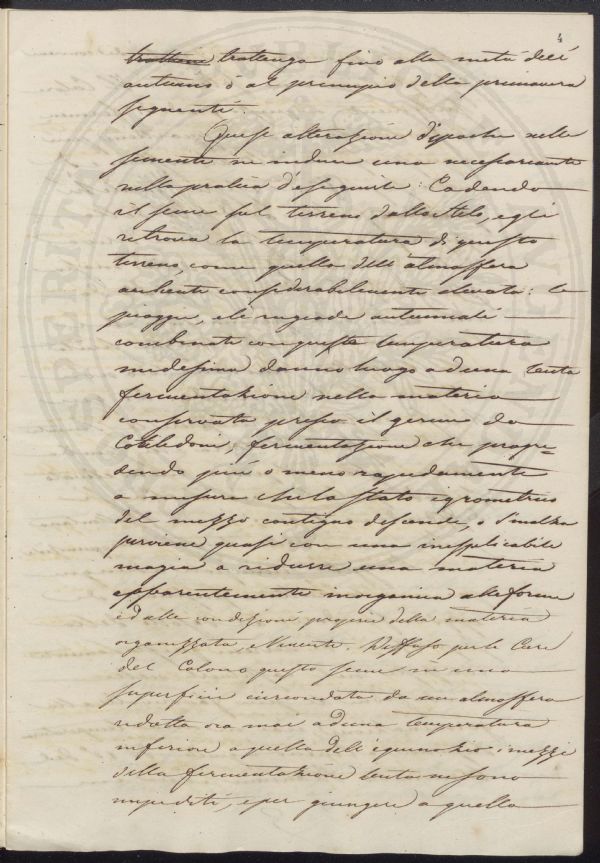 4
trattene trattenga fino alla metà dell'
autunno o al principio della primavera
seguenti.
Queste alterazione nelle
semente ne induce una necessariamente
nella pratica d'eseguirle: Cadendo
il seme sul terreno dallo stelo, egli
ritrova la temperatura di questo
terreno, come quella dell'atmosfera
ambiente considerabilmente elevata: le
piogge, e le rugiade autunnali
combinate con queste temperatura
medesima danno luogo ad una lenta
fermentazione nella materia
conservata presso il germe da
Cotiledoni, fermentazione che progre=
dendo più o meno rapidamente
a misura che lo stato igrometrico
del mezzo contiguo discende, o s'inalza
perviene quasi con una inesplicabile
magia a ridurre una materia
apparentemente inorganica alle forme
ed alle condizioni proprie della materia
organizzata, e vivente. Diffuso per le Cure
del Colono questo seme in una
superficie circondata da un atmosfera
ridotta ora mai ad una temperatura
inferiore a quella dell'equinozio i mezzi
della fermentazione lenta ne sono
impediti, e per giungere a quella